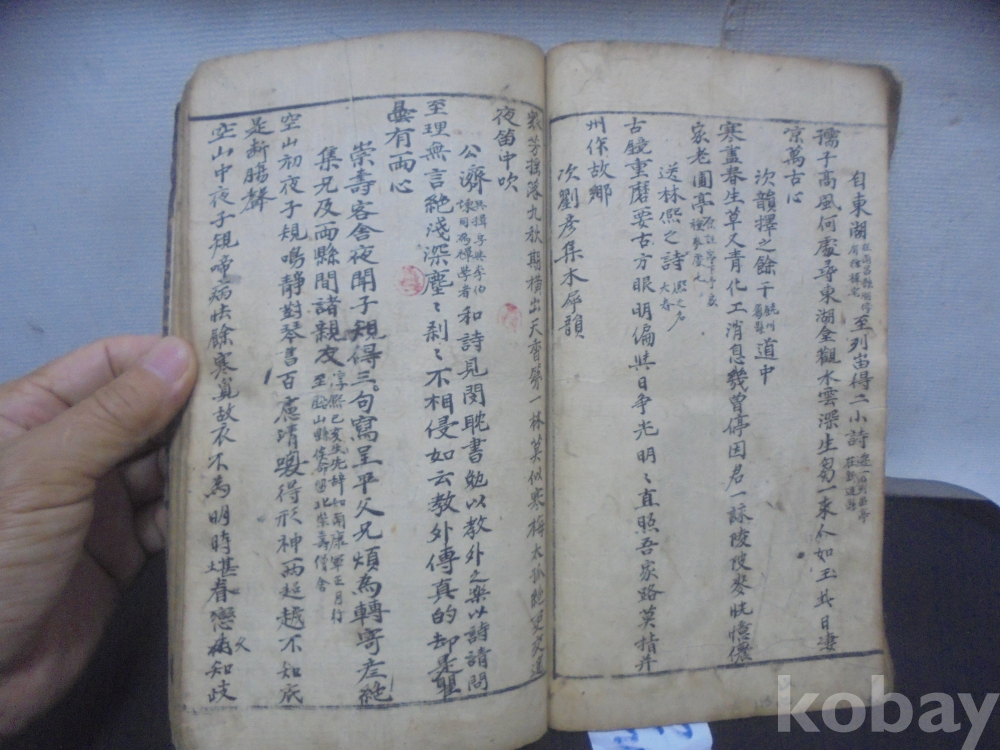 自東湖至列岫得二小詩
孺子高風何處尋東湖金觀水雲深生芻一束人如玉此日淒
凉萬古心
次韻擇之餘干道中
寒盡春生草又青化工消息幾曾停因君一詠陂陂麥恍憶儂
家老圃亭
送林熙之詩
古鏡重磨要古方眼明偏與日爭光明〻直照吾家路莫指并
州作故鄉
次劉彥集木犀韻
衆芳搖落九秋期橫出天香第一林莫似寒梅太孤絶更敎遣
夜笛中吹
公濟和詩見閔耽書勉以敎外之樂以詩請問
至理無言絶淺深塵〻刹〻不相侵如云敎外傳真的却是瞿
曇有兩心
崇壽客舍夜聞子規得三句寫呈平父兄煩為轉寄彦
集兄及兩縣間諸親友
空山初夜子規鳴靜對琴書百慮清喚得形神兩超越不知底
是斷腸聲
空山中夜子規啼病怯餘寒覓故衣不為明時堪眷戀病知歧
kobay